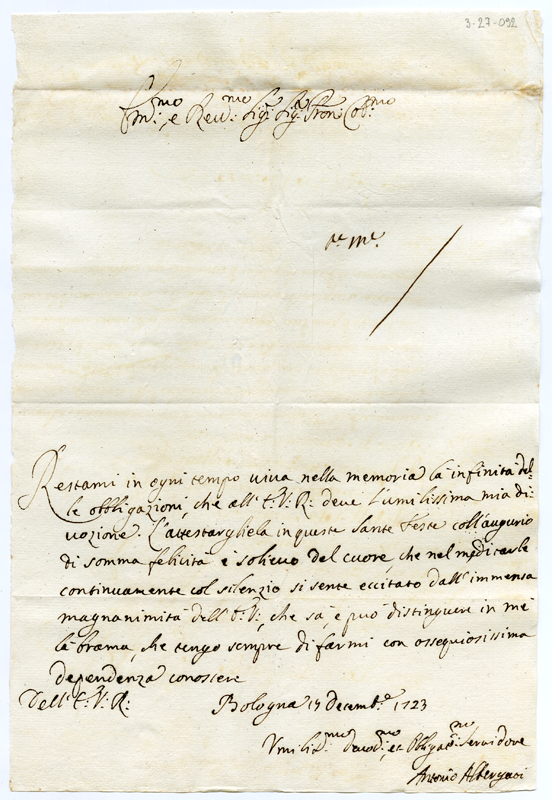 3-27-092
Em.mo, e Reu.mo Sig.r Sig.r Pron Col.mo
Restami in ogni tempo viva nella memoria la infinità del-
le obbligazioni, che all'E: V: R: deve l'umilissima mia di-
vozione. L'attestargliela in queste Sante Feste coll'augurio
di somma felicità è solievo del cuore, che nel medicarle
continuamente col silenzio si sente eccitato dall'immensa
magnanimità dell'E: V:, che sà, e può distinguere in me
la brama, che tengo sempre di farmi con ossequiosissima
dependenza conoscere
Dell'E: V: R: Bologna 15 Decemb.e 1723
Vmiliss.mo Deuot.mo, et Obligat.mo Seruidore
Antonio Albergati